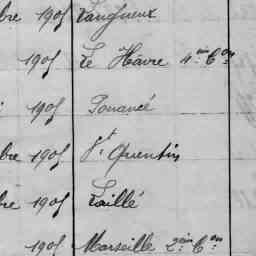 bre 1905 Langueux
1905 Le Havre 4ème Con
1905 Pouancé
bre 1905 St Quentin
bre 1905 Laillé
1905 Marseille 2ème Con